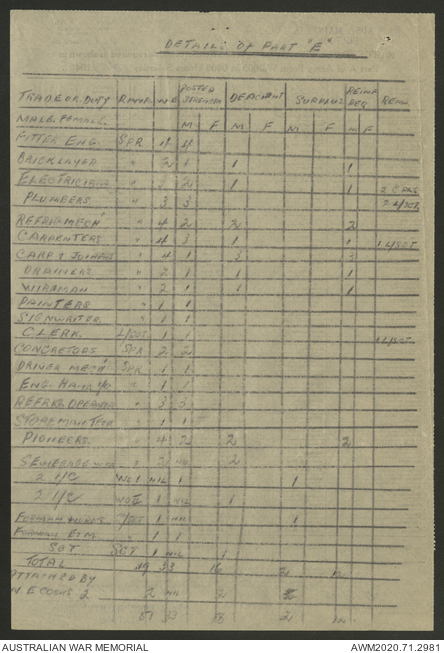 DETAILS OF PART "E"
TRADE OR DUTY RANK W.E POSTED STRENGTH DEFICIENT SURPLUS REINF REQ REM.
MALE. FEMALE. M F M F M F M F
FITTER ENG. SPR 4 4
BRICKLAYER " 2 1 1 1
ELECTRICIANS " 3 2 1 1 2 CPLS
PLUMBERS " 3 3 2 L/SGT.
REFRIG MECH " 4 2 2 2
CARPENTERS " 4 3 1 1 1 L/SGT
CARP & JOINERS " 4 1 3 3
DRAINERS " 2 1 1 1
WIREMAN " 2 1 1 1
PAINTERS " 1 1
SIGNWRITER " 1 1
CLERK. L/SGT 1 1 1 L/SGT.
CONCRETORS SPR 2 2
DRIVER MECH SPR 1 1
ENG. HAND " 1 1
REFRIG. OPERATOR " 3 3
STOREMAN TECH " 1 1
PIONEERS " 4 2 2 2
SEWERAGE " 2 NIL 2
2 I/C WO1 NIL 1 1
2 I/C WOII 1 NIL 1
FOREMAN WORKS S/SGT 1 NIL 1
FOREMAN E & M " 1 1
SGT SGT 1 NIL 1
TOTAL 49 33 16 2 12
ATTACHED BY
W E COOKS 2 2 NIL 2
51 33 18 2 12
AUSTRALIAN WAR MEMORIAL AWM2020.71.2981